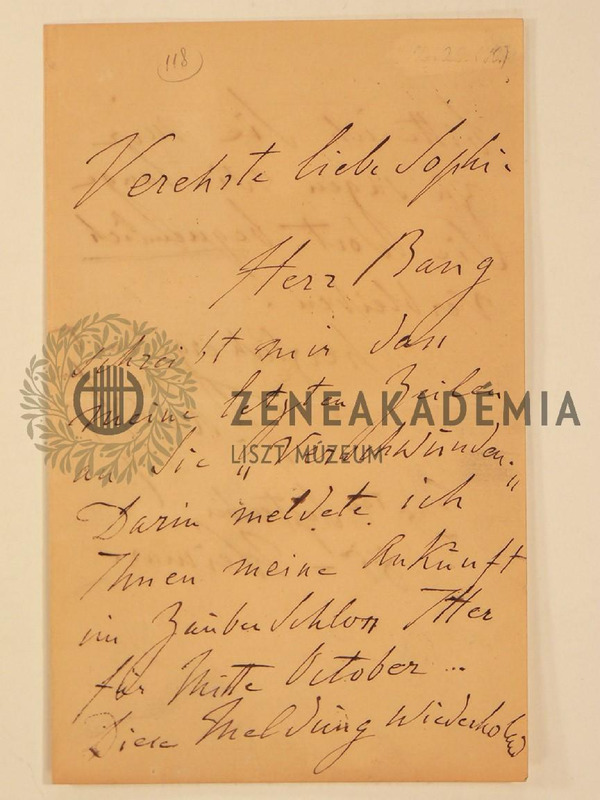 118
Verehrte liebe Sophie
Herr Bang
schreibt mir dass
meine letzten Zeilen
an Sie „Verschwunden."
Darin meldete ich
Ihnen meine Ankunft
im Zauberschloss Itter
für Mitte October ..
Diese Meldung wiederholend
ZENEAKADÉMIA
LISZT MÚZEUM